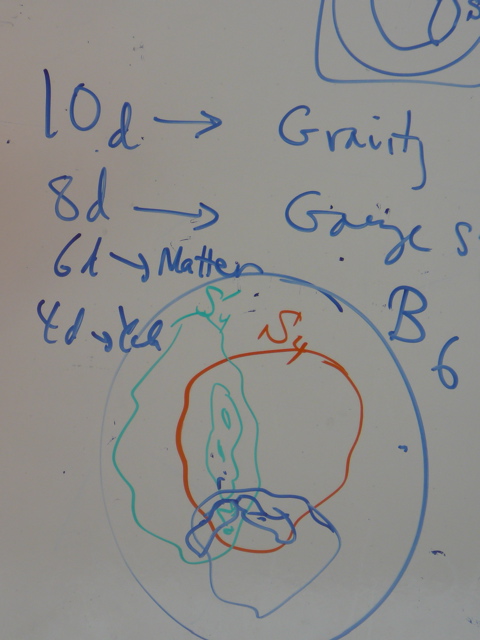 10d → Gravity
8d → Gauge s
6d → Matter
4d → Yuk
S'4
S4
B6